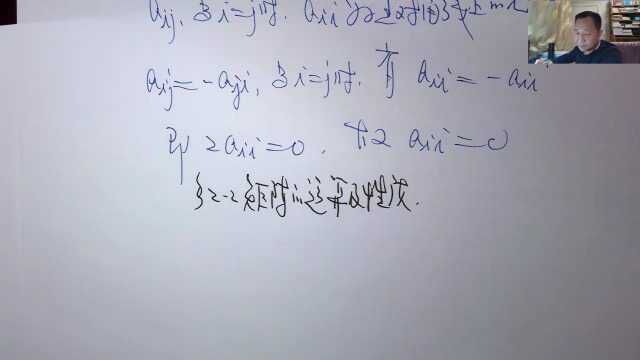 aij, 当i=j时. aii 为主对角线上
aij=-aji, 当i=j时. 有 aii=-aii
即 2aii=0. 故 aii=0
§2-2 矩阵的运算及性质.